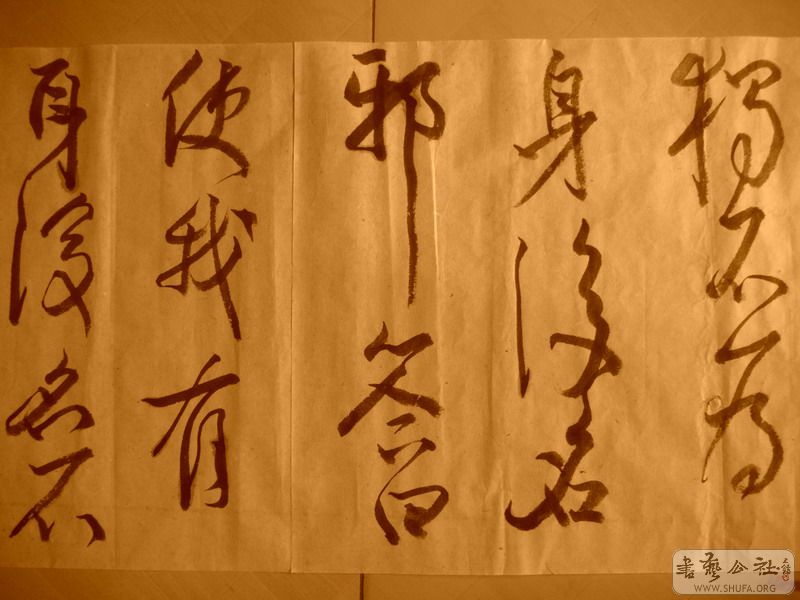 獨不為
身後名
邪答曰
使我有
身後名不
書藝公社
WWW.SHUFA.ORG